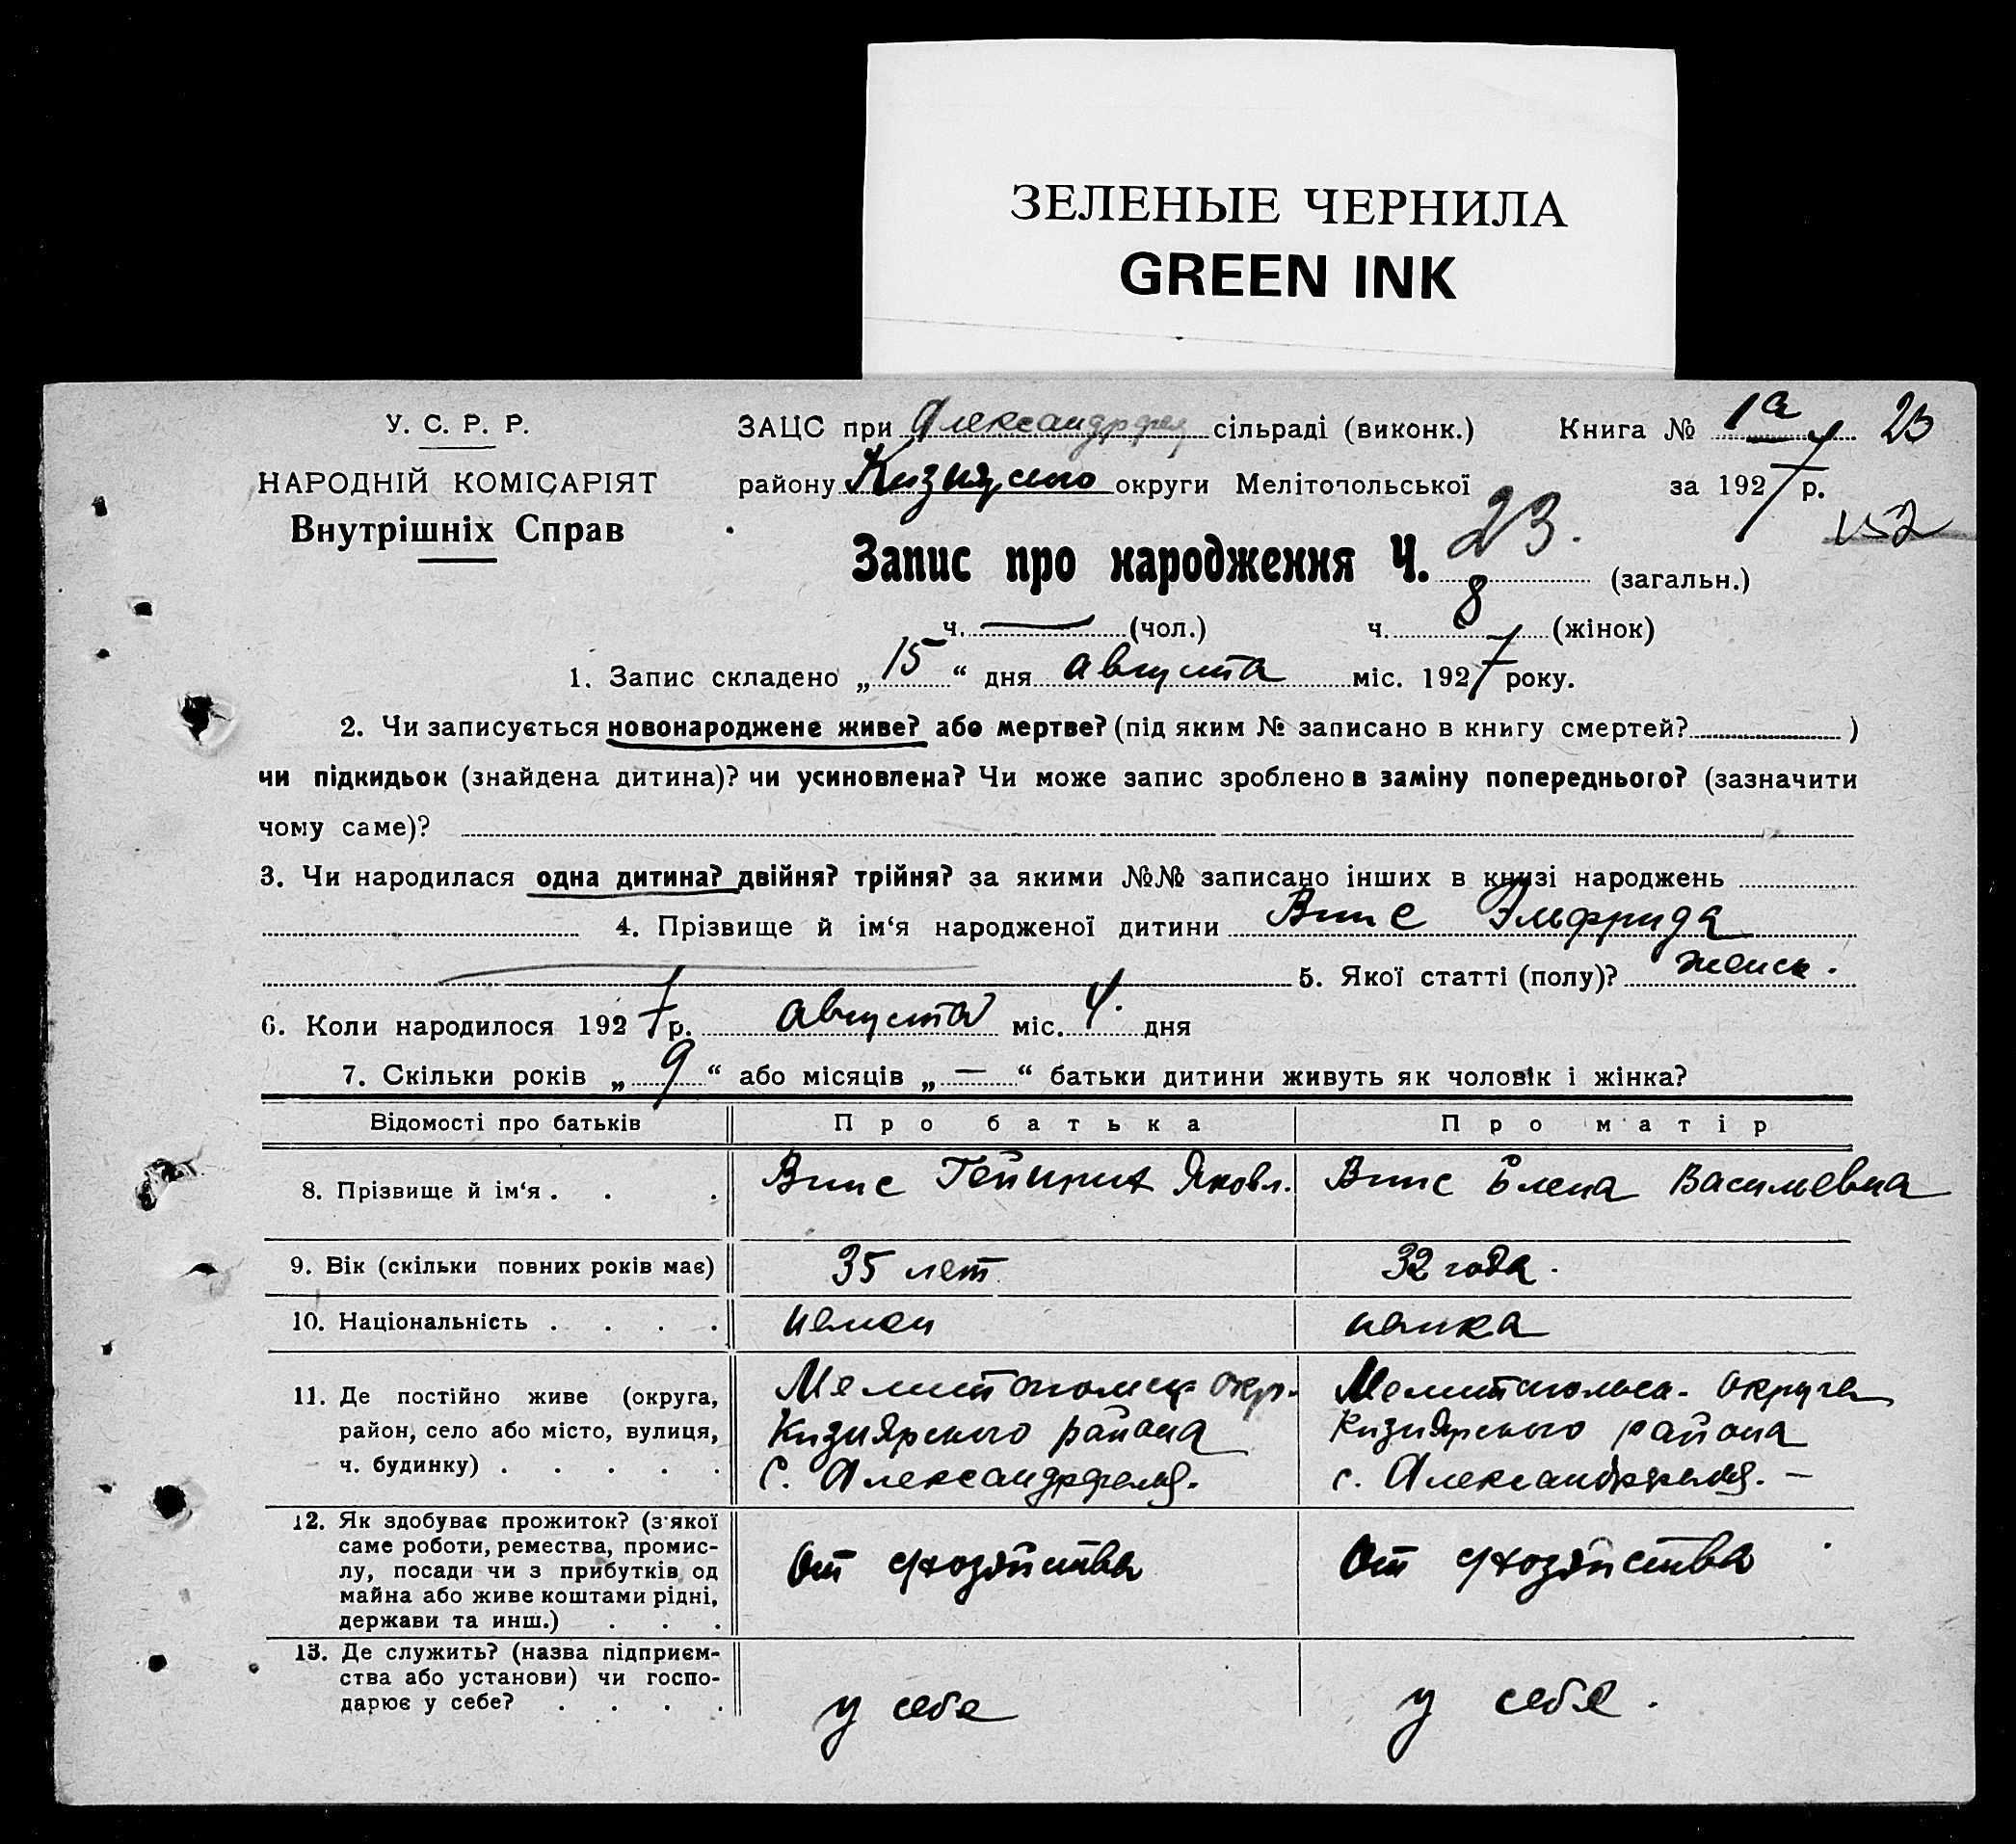 ЗЕЛЕНЫЕ ЧЕРНИЛА
GREEN INK
У. С. Р. Р.
НАРОДНІЙ КОМІСАРІЯТ
Внутрішніх Справ
ЗАЦС при Александрфел сільраді (виконк.) Книга № 1а 23
району Кизиярского округи Мелітопольської за 1927 р.
152
Запис про народження Ч. 23. (загальн.)
ч. — (чол.) ч. 8 (жінок)
1. Запис складено „15“ дня августа міс. 1927 року.
2. Чи записується новонароджене живе? або мертве? (під яким № записано в книгу смертей? )
чи підкидьок (знайдена дитина)? чи усиновлена? Чи може запис зроблено в заміну попереднього? (зазначити
чому саме)?
3. Чи народилася одна дитина? двійня? трійня? за якими №№ записано інших в книзі народжень
4. Прізвище й ім‘я народженої дитини Винс Эльфрида
5. Якої статті (полу)? женск.
6. Коли народилося 1927 р. августа міс. 4. дня
7. Скільки років „9“ або місяців „—“ батьки дитини живуть як чоловік і жінка?
Відомості про батьків Про батька Про матір
8. Прізвище й ім‘я . . . Винс Гейнрих Яковл. Винс Елена Васильевна
9. Вік (скільки повних років має) 35 лет 32 года.
10. Національність . . . . немец немка
11. Де постійно живе (округа, Мелитопольск окр. Мелитопольск. округа
район, село або місто, вулиця, Кизиярского района Кизиярского района
ч. будинку) . . . . . с. Александрфельд. с. Александрфельд. —
12. Як здобуває прожиток? (з якої
саме роботи, ремества, промис-
лу, посади чи з прибутків од От с/хозяйства От с/хозяйства
майна або живе коштами рідні,
держави та инш.) . . .
13. Де служить? (назва підприєм-
ства або установи) чи госпо-
дарює у себе? . . . . у себе у себя.